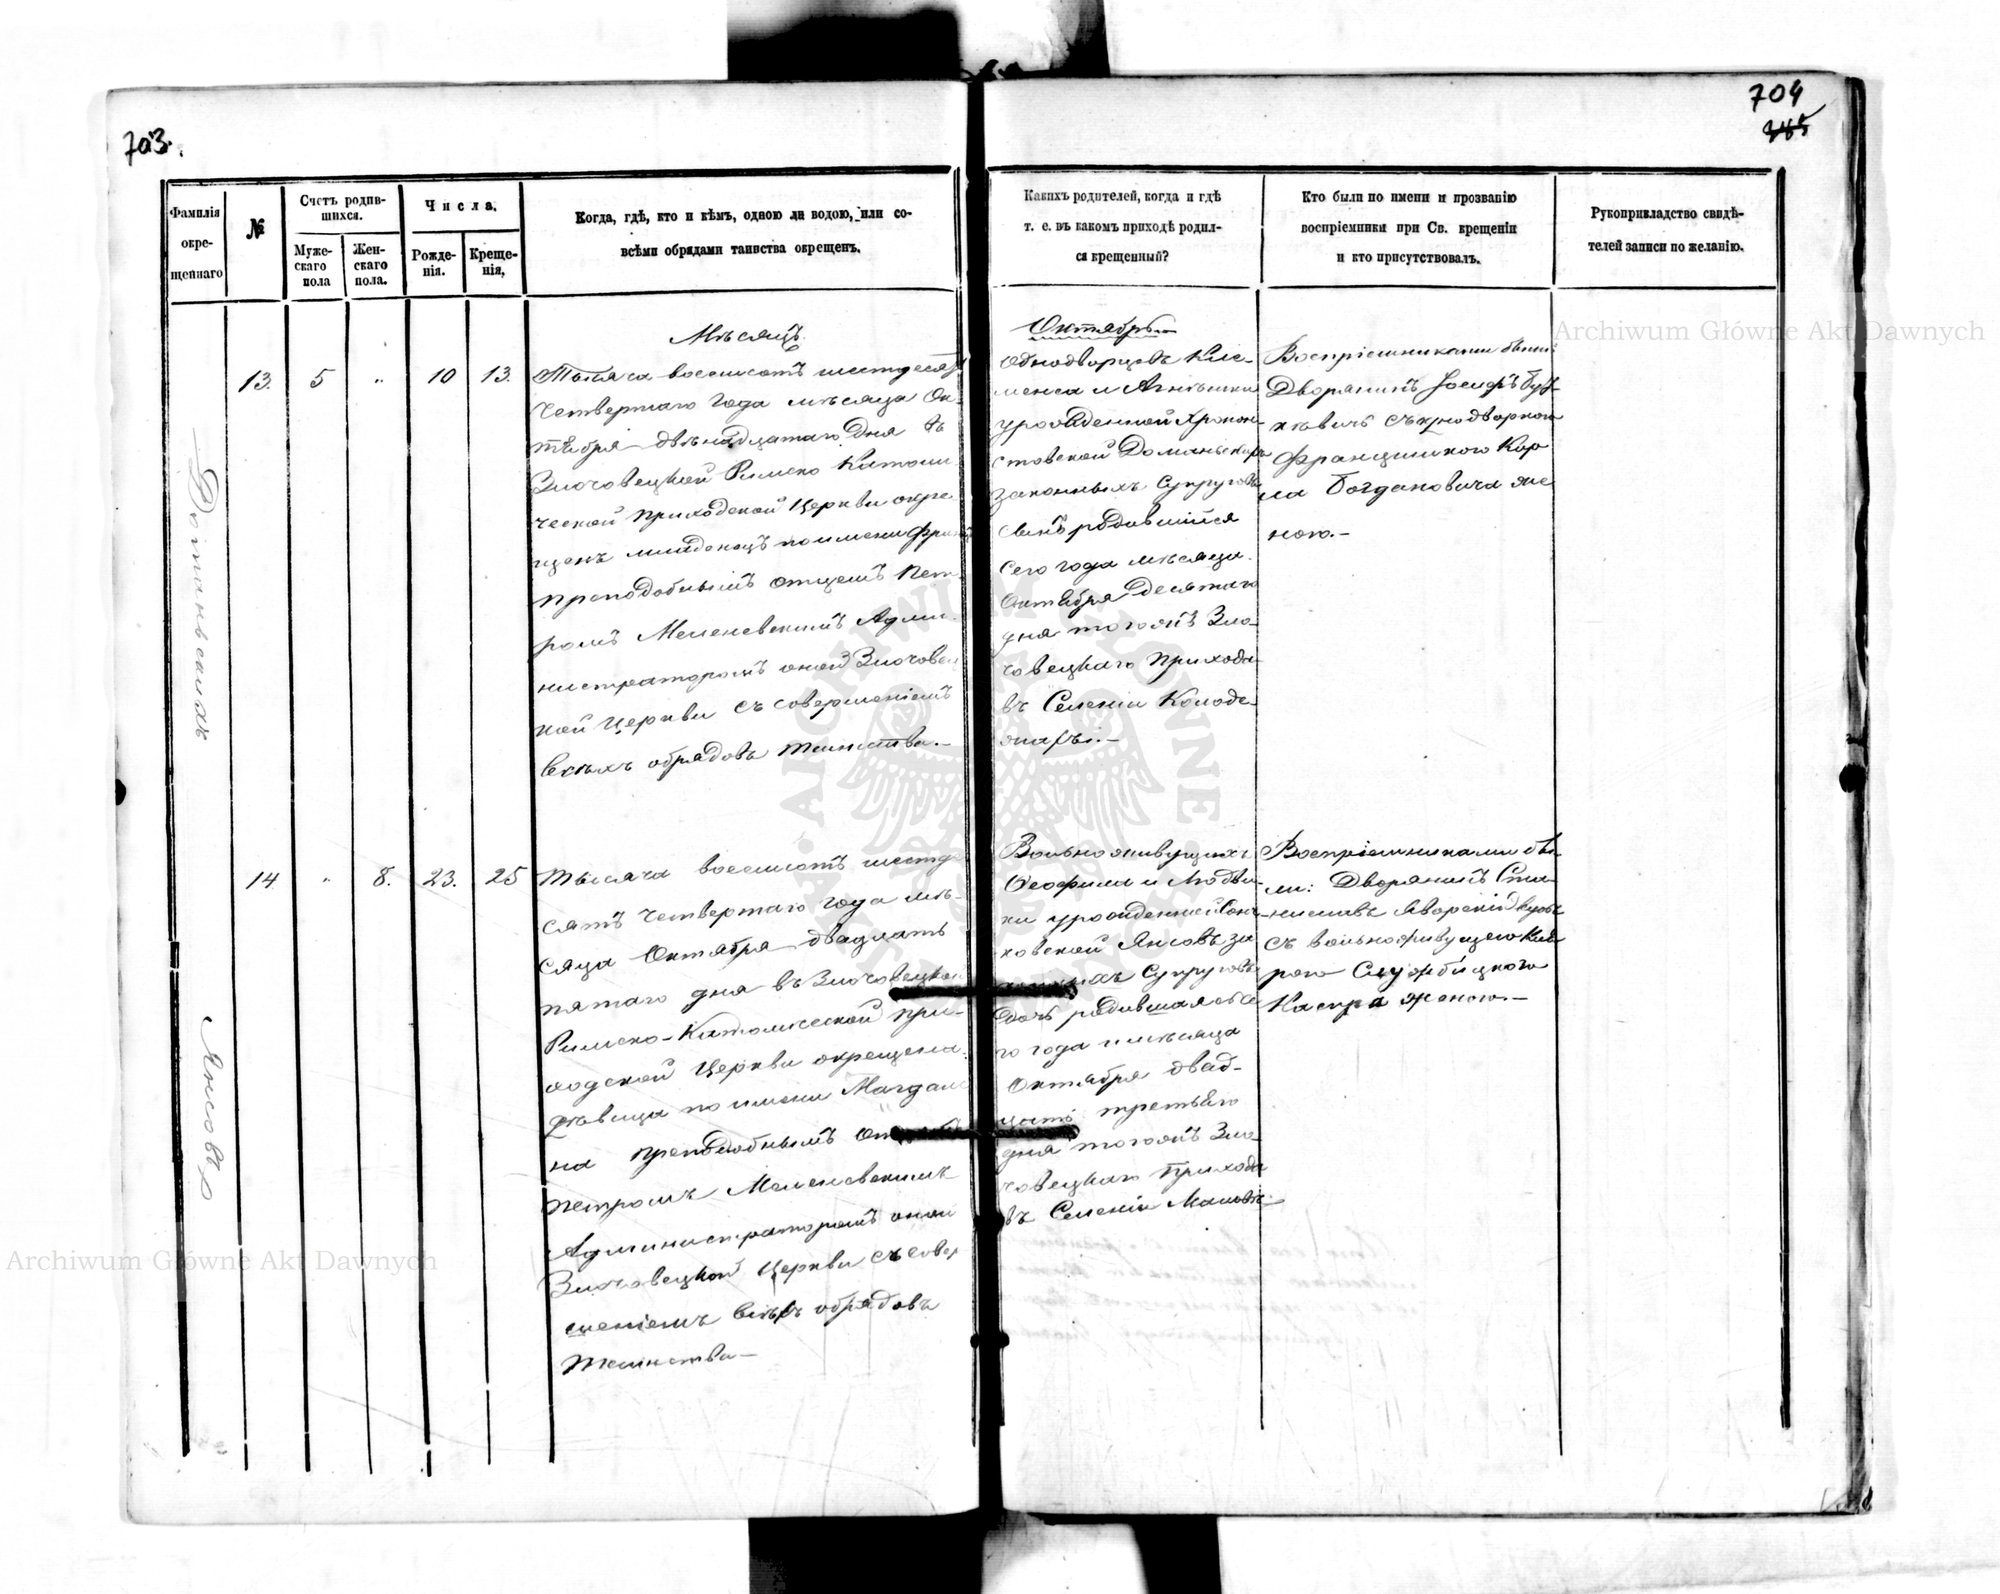 703.
704
Фамилія окре- щеннаго
№
Счетъ родив- шихся.
Муже- скаго пола
Жен- скаго пола.
Числа.
Рожде- нія.
Креще- нія,
Когда, гдѣ, кто и кѣмъ, одною ли водою, или со-
всѣми обрядами таинства окрещенъ.
Мѣсяцъ
13. 5 " 10 13.
Тысяча восемсотъ шестдесят
Четвертаго года мѣсяца Ок-
тября двѣнадцатаго Дня въ
Злочовецкой Римско Катол
ческой приходской Церкви окре-
щенъ младенецъ по имени Фран
преподобнымъ отцемъ Пет-
ромъ Меленевскимъ Адми-
нистраторомъ оной Злочовец
кой Церкви съ совершеніемъ
всѣхъ обрядовъ таинства.—
Доманьскихъ
14 " 8. 23. 25
Тысяча восемсотъ шестде
сятъ Четвертаго года мѣ-
сяца Октября двадцать
пятаго дня въ Злочовецкой
Римско-Католической при-
ходской Церкви окрещена
дѣвица по имени Магдале
на преподобнымъ
Петромъ Меленевскимъ
Администраторомъ оной
Злочовецкой Церкви съ совер
шеніемъ всѣхъ обрядовъ
таинства—
Янсовъ
Какихъ родителей, когда и гдѣ
т. е. въ какомъ приходѣ родил-
ся крещенный?
Кто были по имени и прозванію
воспріемники при Св. крещеніи
и кто присутствовалъ.
Рукоприкладство свидѣ-
телей записи по желанію.
Октябрь
Однодворцевъ Кле-
менса и Агнѣшки
урожденной
Доманьскихъ
законныхъ Супруговъ
сынъ родившійся
сего года мѣсяца
Октября десятаго
дня тогожъ Зло-
човецкаго прихода
въ Селеніи Колоде-
Воспріемниками были
Дворянинъ Іосифъ
съ однодворкою
Францишкою Каро
ла Богдановича же
ною.—
Вольноживущихъ
Ѳеофила и Людви-
ки урожденной
Янсовъ за
конныхъ Супруговъ
дочь родившаяся се
го года и мѣсяца
Октября двад-
цать третьяго
дня тогожъ Зло-
човецкаго прихода
въ Селеніи
Воспріемниками бы-
ли: Дворянинъ Ста-
ниславъ Яворскій
съ вольноживущею
Каспра женою.—
Archiwum Główne Akt Dawnych
Archiwum Główne Akt Dawnych